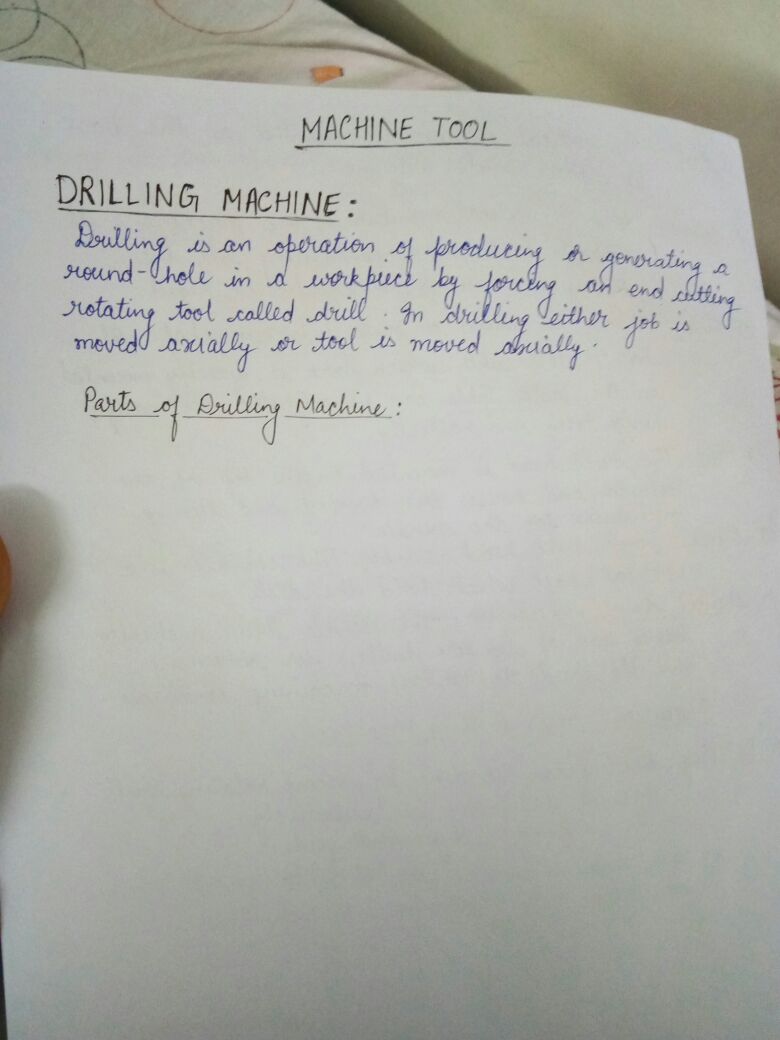 MACHINE TOOL
DRILLING MACHINE:
Drilling is an operation of producing or generating a
round-hole in a workpiece by forcing an end cutting
rotating tool called drill. In drilling either job is
moved axially or tool is moved axially.
Parts of Drilling Machine: